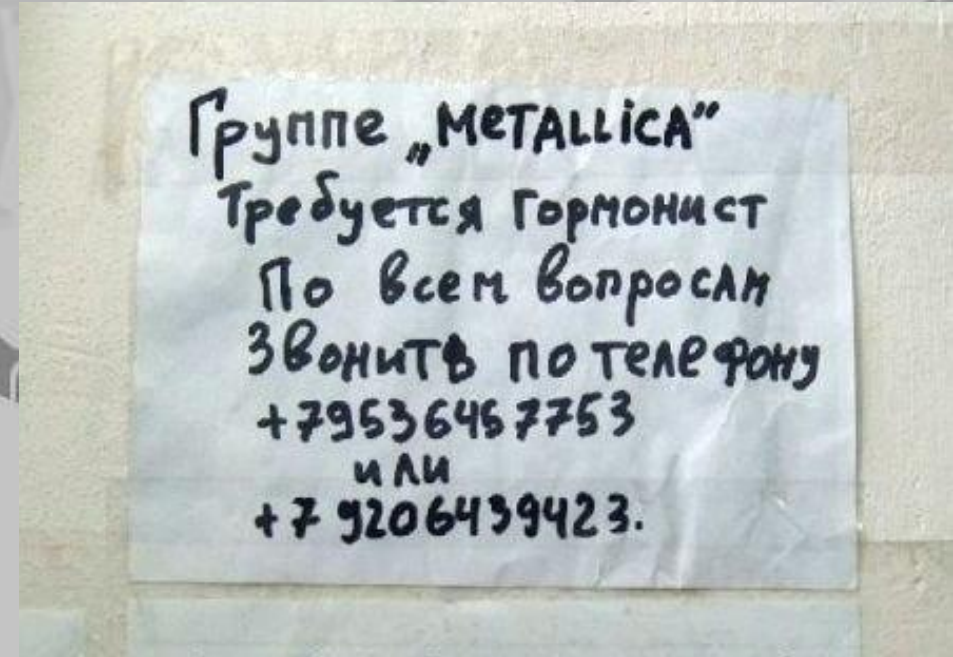 Группе „METALLiCA”
Требуется гормонист
По всем вопросам
Звонить по телефону
+79536457753
или
+7 9206439423.